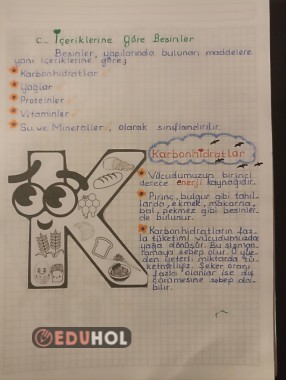 C- İçeriklerine Göre Besinler
Besinler, yapılarında bulunan maddelere
yani içeriklerine göre;
Karbonhidratlar
Yağlar
Proteinler
Vitaminler
Su ve Mineraller, olarak sınıflandırılır.
Karbonhidratlar
Vücudumuzun birinci
derece enerji kaynağıdır.
Pirinç, bulgur gibi tahıl-
larda, ekmek, makarna,
bal, pekmez gibi besinler-
de bulunur.
Karbonhidratların faz-
la tüketimi vücudumuzda
yağa dönüşür. Bu şişman-
lamaya sebep olur. O yüz-
den yeterli miktarda tü-
ketmeliyiz. Şeker oranı
fazla olanlar ise diş
çürümesine sebep ola-
bilir.
K
EDUHOL